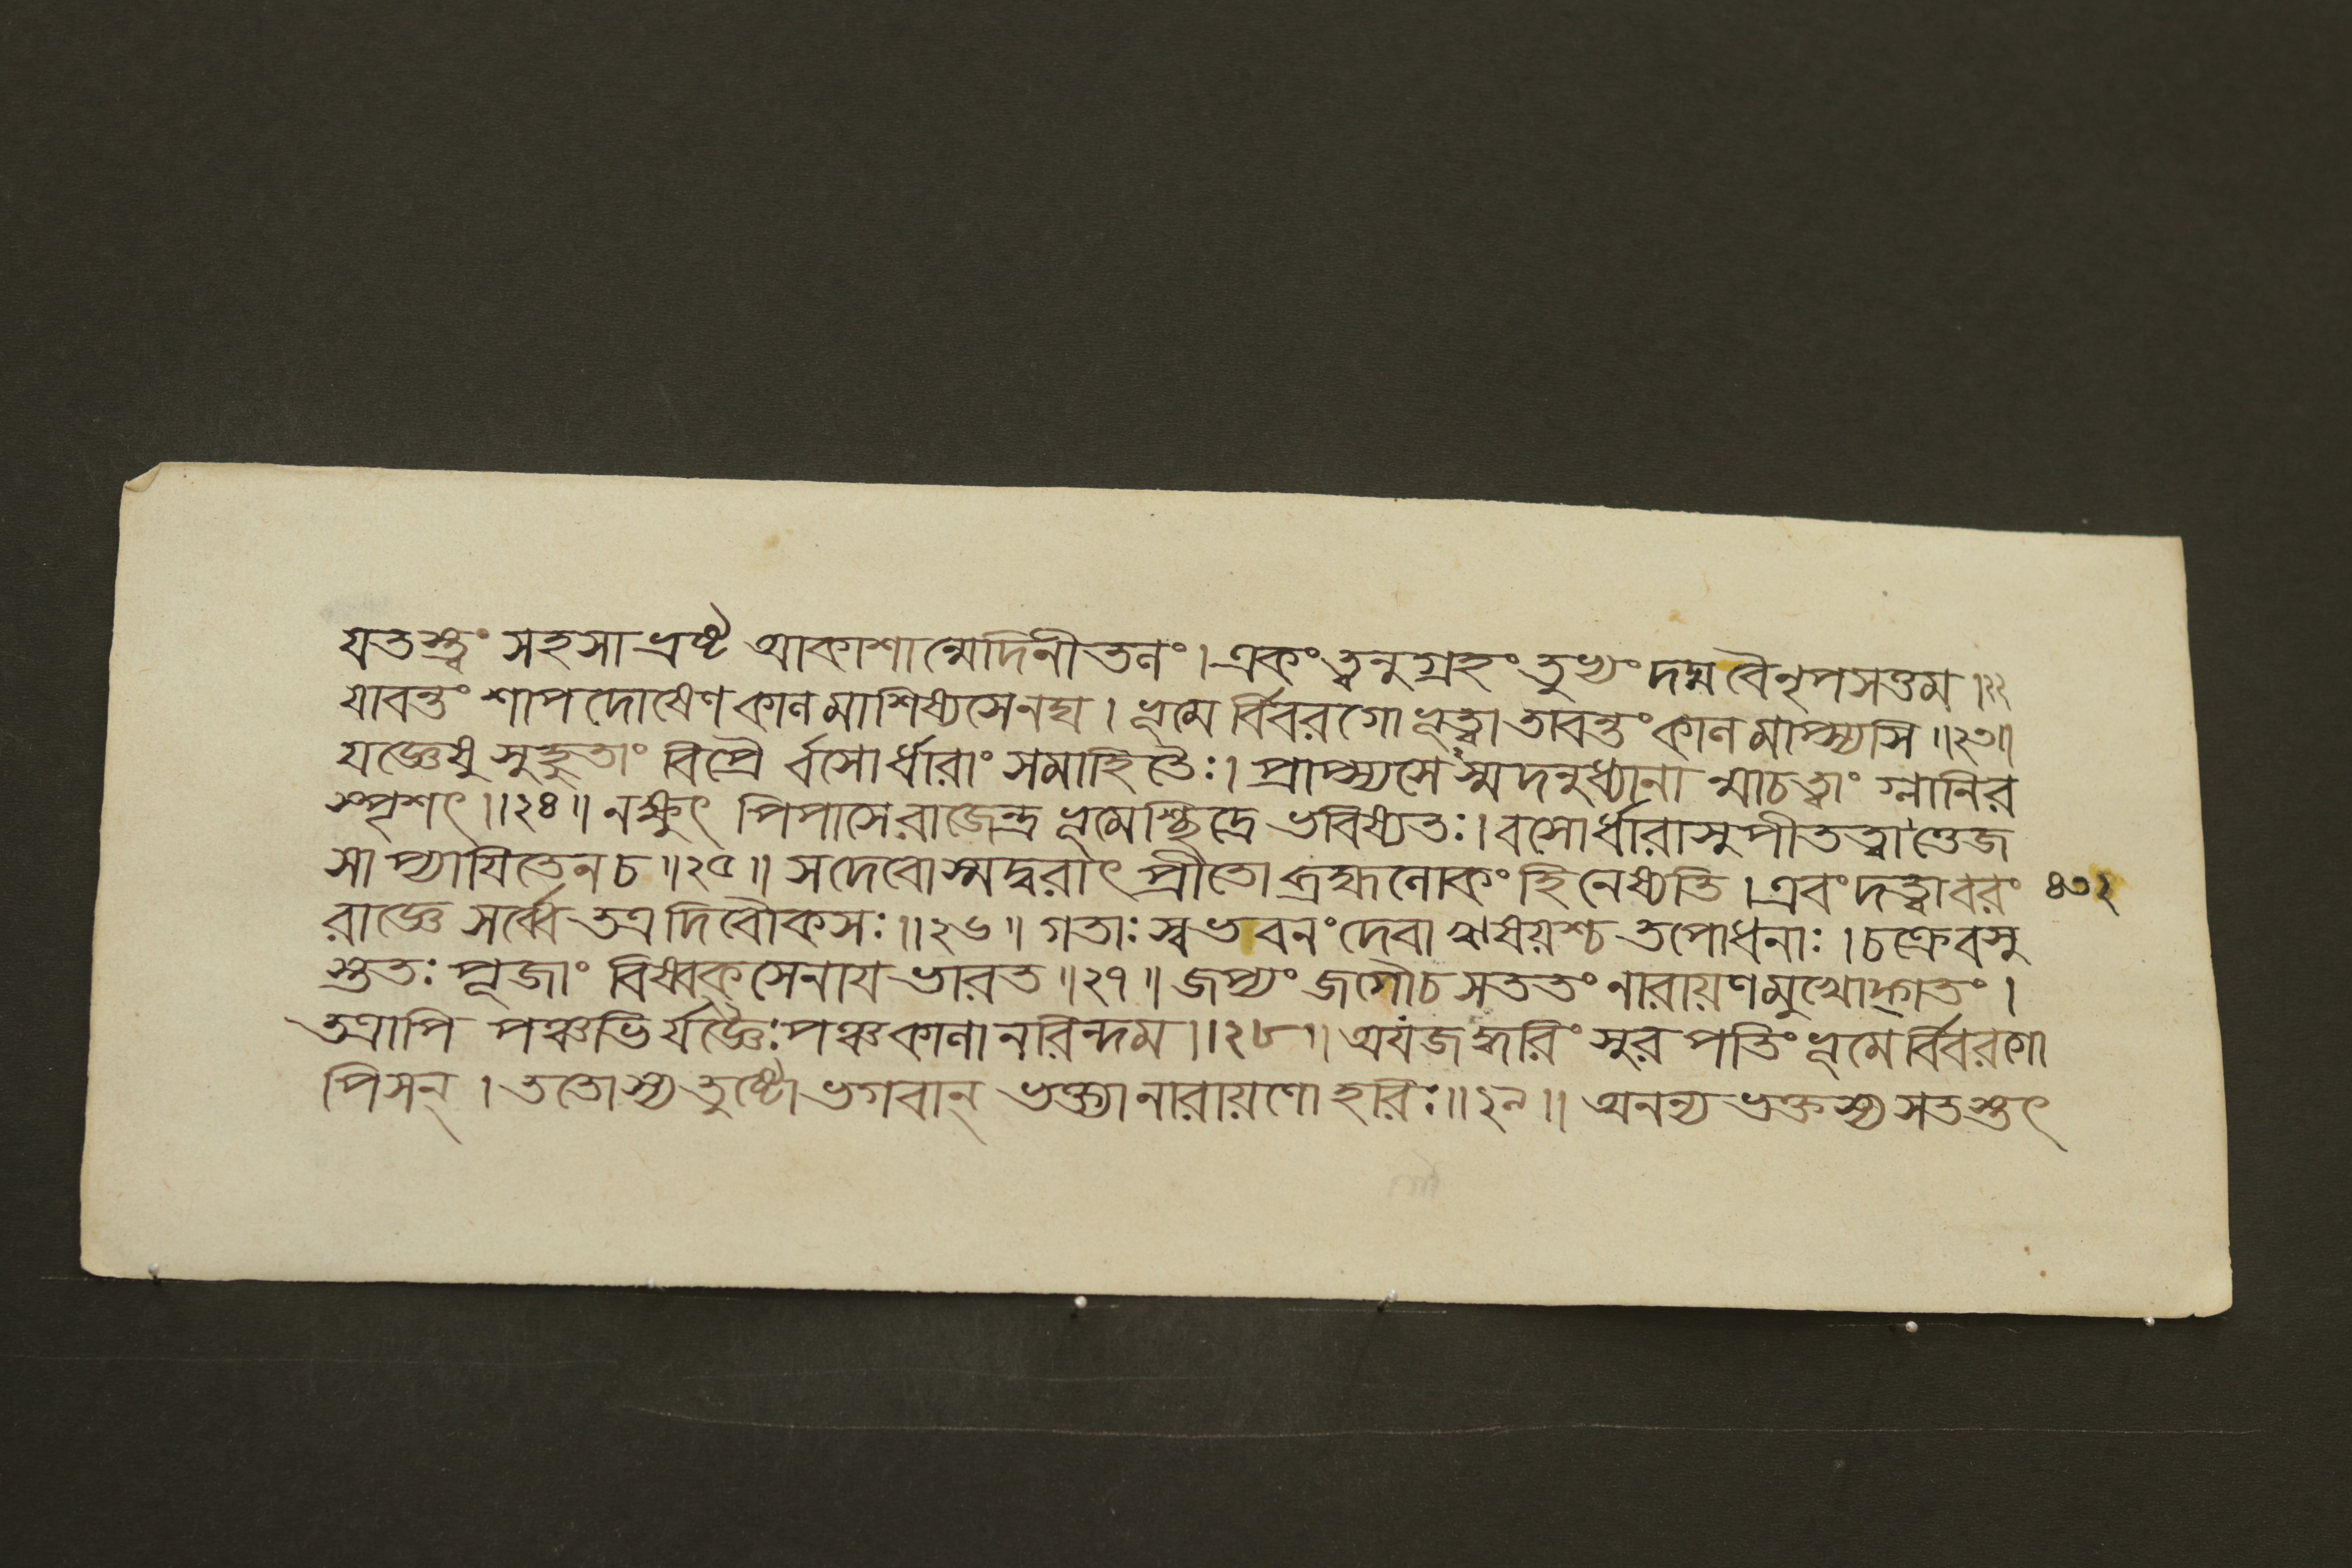 যতস্ত্বং সহসা ভ্রষ্ট আকাশান্মেদিনীতলং । একং ত্বনুগ্রহং তুভ্যং দদ্ম বৈ নৃপসত্তম ।২২
যাবন্তং শাপদোষেণ কালমাশিষ্যসেনঘ । ভূমের্ব্বিবরগো ভূত্বা তাবন্তং কালমাপ্স্যসি ॥২৩॥
যজ্ঞেষু সুহুতাং বিপ্রৈর্বসোর্ধারাং সমাহিতৈঃ । প্রাপ্স্যসেঽস্মদনুধ্যানা ন্মাচত্বাং গ্লানির
স্পৃশৎ ॥২৪॥ নক্ষুৎ পিপাসে রাজেন্দ্র ভূমেশ্ছিদ্রে ভবিষ্যতঃ । বসোর্ধারাসুপীতত্বাত্তেজ
সাপ্যায়িতেন চ ॥২৫॥ সদেবোস্মদ্বরাৎ প্রীতো ব্রহ্মলোকং হি নেষ্যতি । এবং দত্ত্বা বরং ৪৩২
রাজ্ঞে সর্ব্বে তত্র দিবৌকসঃ ॥২৬॥ গতাঃ স্বভবনং দেবা ঋষয়শ্চ তপোধনাঃ । চক্রে বসু
স্ততঃ পূজাং বিষ্বক্সেনায ভারত ॥২৭॥ জপ্যং জগৌ চ সততং নারায়ণমুখোদ্গতং ।
তত্রাপি পঞ্চভির্যজ্ঞৈঃ পঞ্চকালানরিন্দম ॥২৮॥ অযজদ্ধরিং সুরপতিং ভূমের্ব্বিবরগো
পিসন্ । ততোস্য তুষ্টো ভগবান্ ভক্ত্যা নারায়ণো হরিঃ ॥২৯॥ অনন্যভক্তস্য সতস্তৎ